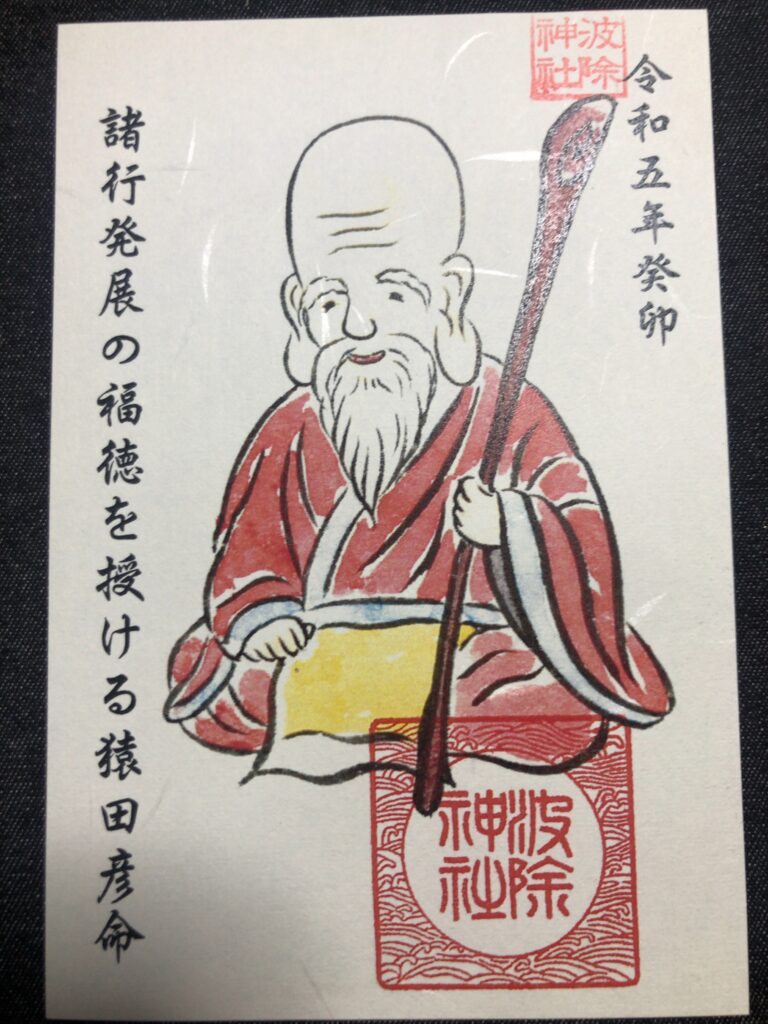 波除
神社
令和五年癸卯
諸行発展の福徳を授ける猿田彦命
波除
神社